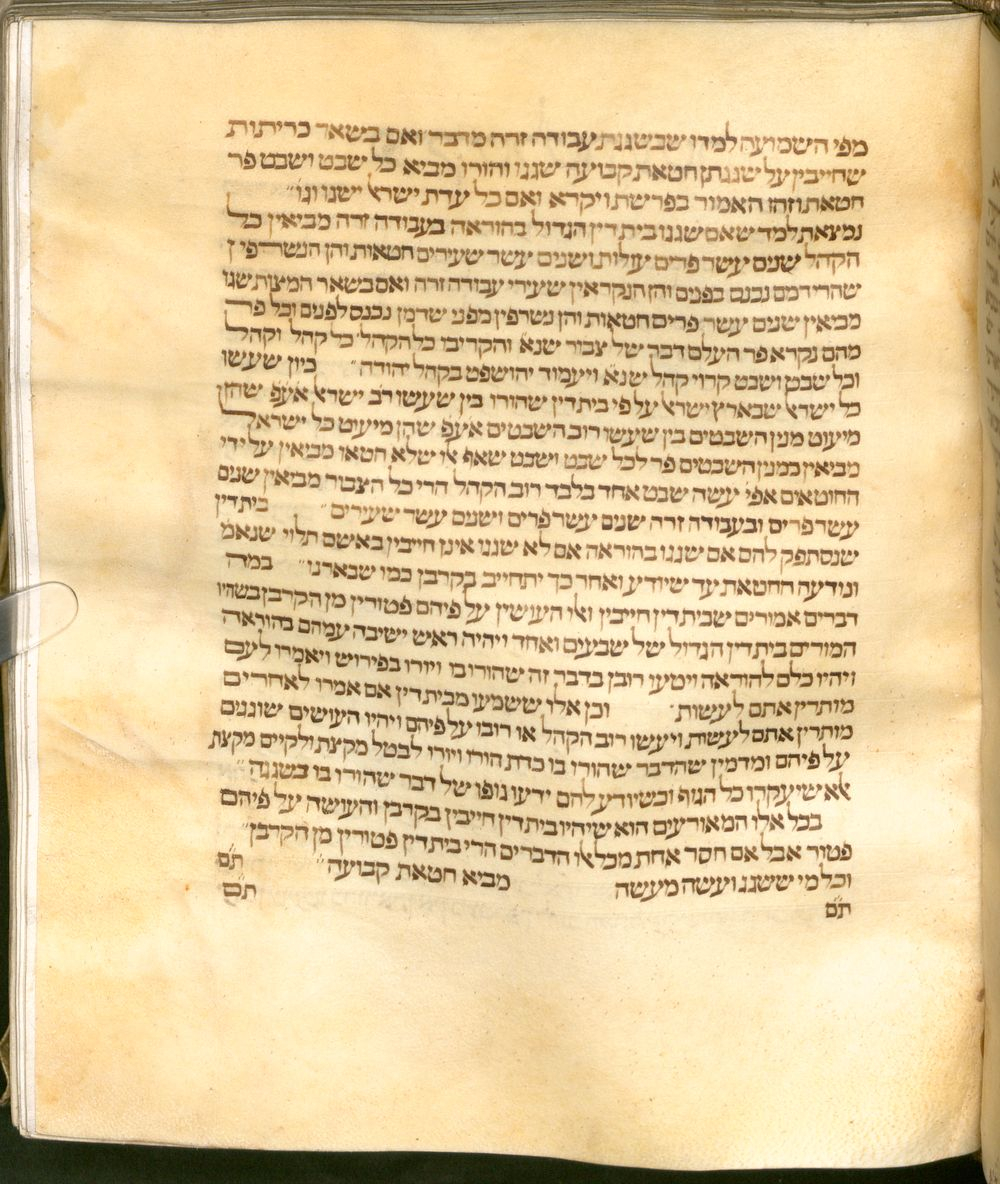 מפי השמועה למדו שבשגגת עבודה זרה מדבר ואם בשאר כריתות
שחייבין על שגגתן חטאת קבועה שגגו והורו מביא כל שבט ושבט פר
חטאת וזהו האמור בפרשת ויקרא ואם כל עדת ישר׳ ישגו וגו׳
נמצאת למד שאם שגגו בית דין הגדול בהוראה בעבודה זרה מביאין כל
הקהל שנים עשר פרים עולות ושנים עשר שעירים חטאות והן הנשרפין
שהרי דמם נכנס בפנים והן הנקראין שעירי עבודה זרה ואם בשאר המצות שגו
מביאין שנים עשר פרים חטאות והן נשרפין מפני שדמן נכנס לפנים וכל פר
מהם נקרא פר העלם דבר של צבור שנא׳ והקריבו כל הקהל כל קהל וקהל
וכל שבט ושבט קרוי קהל שנא׳ ויעמוד יהושפט בקהל יהודה״ כיון שעשו
כל ישר׳ שבארץ ישר׳ על פי בית דין שהורו בין שעשו רוב ישר׳ אעפ׳ שהן
מיעוט מנין השבטים בין שעשו רוב השבטים אעפ׳ שהן מיעוט כל ישר׳
מביאין כמנין השבטים פר לכל שבט ושבט שאף אלו שלא חטאו מביאין על ידי
החוטאים אפי׳ עשה שבט אחד בלבד רוב הקהל הרי כל הצבור מביאין שנים
עשר פרים ובעבודה זרה שנים עשר פרים ושנים עשר שעירים״ בית דין
שנסתפק להם אם שגגו בהוראה אם לא שגגו אינן חייבין באשם תלוי שנאמ׳
ונודעה החטאת עד שיודע ואחר כך יתחייב בקרבן כמו שבארנו״ במה
דברים אמורים שבית דין חייבין ואלו העושין על פיהם פטורין מן הקרבן בשהיו
המורים בית דין הגדול של שבעים ואחד ויהיה ראש ישיבה עמהם בהוראה
ויהיו כלם להוראה ויטעו רובן בדבר זה שהורו בו ויורו בפירוש ויאמרו לעם
מותרין אתם לעשות׳ וכן אלו ששמעו מבית דין אם אמרו לאחרים
מותרין אתם לעשות ויעשו רוב הקהל או רובו על פיהם ויהיו העושים שוגגים
על פיהם ומדמין שהדבר שהורו בו כדת הורו ויורו לבטל מקצת ולקיים מקצת
לא שיעקרו כל הגוף וכשיודע להם ידעו גופו של דבר שהורו בו בשגגה״
בכל אלו המאורעים הוא שיהיו בית דין חייבין בקרבן והעושה על פיהם
פטור אבל אם חסר אחת מכל אלו הדברים הרי בית דין פטורין מן הקרבן״
וכל מי ששגג ועשה מעשה מביא חטאת קבועה״ ת׳ם׳
ת׳ם ת׳ם